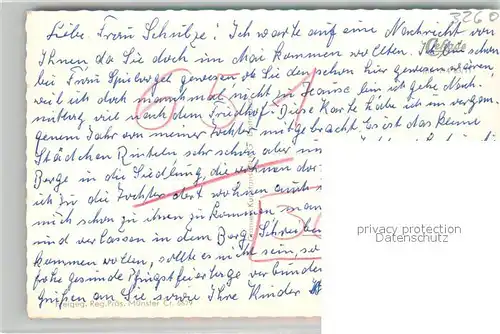 Liebe Frau Schulze! Ich warte auf eine Nachricht von
Ihnen da Sie doch im Mai kommen wollten. Ich bin schon
bei Frau Spielvogel gewesen ob Sie denn schon hier gewesen wären
weil ich doch manchmal nicht zu Hause bin ich gehe Nach-
mittag viel nach dem Friedhof. Diese Karte habe ich im vergan-
genem Jahr von meiner Tochter mitgebracht. Es ist das kleine
Städchen Rinteln sehr schön aber
Berge in die Siedlung, die wohnen dor
ich zu die Tochter dort wohnen auch
mich schon zu ihnen zu kommen man
und verlassen in dem Berg. Schreiben
kommen wollen, sollte es nicht sein, so
frohe gesunde Pfingstfeiertage verbunden
Grüßen an Sie, sowie Ihre Kinder
3260
privacy protection
Datenschutz
Freigeg. Reg. Präs. Münster Cr. 6679